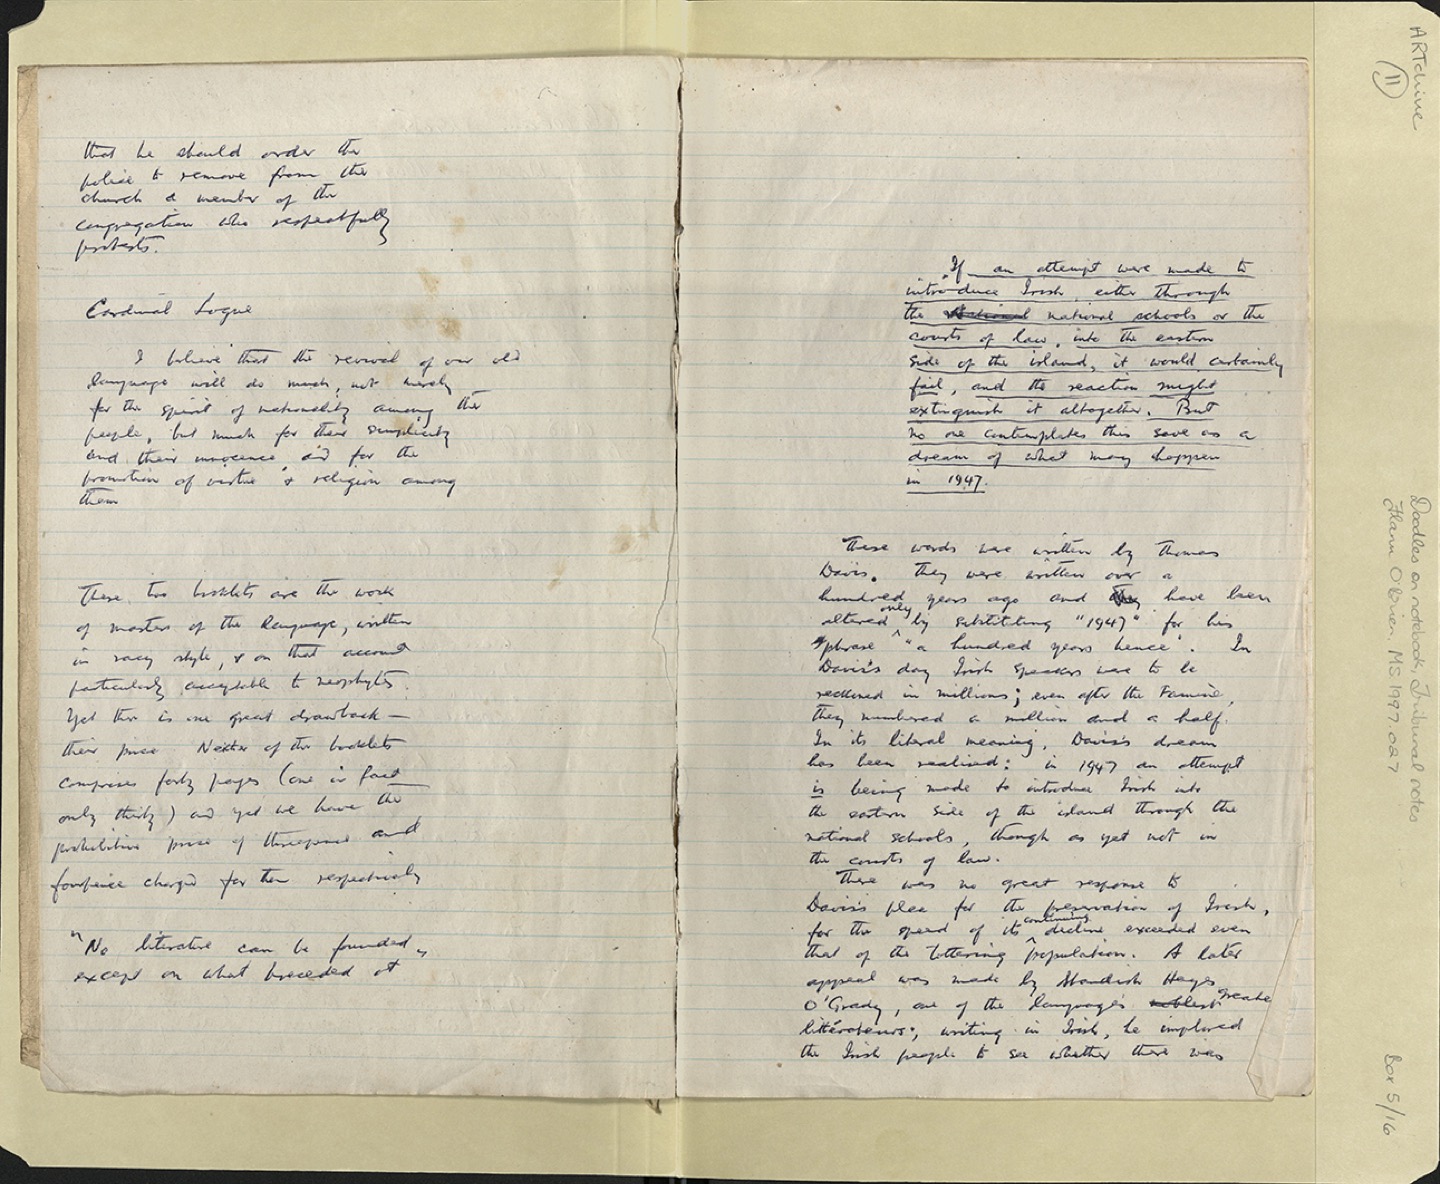 that he should order the
police to remove from the
church a member of the
congregation who respectfully
protests.
Cardinal Logue
I believe that the revival of our old
language will do much, not merely
for the spirit of nationality among the
people, but much for their simplicity
and their innocence and for the
promotion of virtue & religion among
them
These two booklets are the work
of masters of the language, written
in racy style, & on that account
particularly acceptable to neophytes.
Yet there is one great drawback —
their price. Neither of the booklets
comprises forty pages (one in fact
only thirty) and yet we have the
prohibitive price of threepence and
fourpence charged for them respectively
"No literature can be founded
except on what preceded it
"If an attempt were made to
introduce Irish, either through
the national schools or the
courts of law, into the eastern
side of the island, it would certainly
fail, and the reaction might
extinguish it altogether. But
no one contemplates this save as a
dream of what may happen
in 1947.
These words were written by Thomas
Davis. They were written over a
hundred years ago and have been
altered only by substituting "1947" for his
phrase "a hundred years hence". In
Davis's day Irish speakers were to be
reckoned in millions; even after the Famine,
they numbered a million and a half.
In its literal meaning, Davis's dream
has been realised: in 1947 an attempt
is being made to introduce Irish into
the eastern side of the island through the
national schools, though as yet not in
the courts of law.
There was no great response to
Davis's plea for the preservation of Irish,
for the speed of its continuing decline exceeded even
that of the tottering population. A later
appeal was made by Standish Hayes
O'Grady, one of the language's noblest greate
littérateurs; writing in Irish, he implored
the Irish people to see whether there was
ARTchive
11
Doodles on notebook, Tribunal notes
Flann O'Brien. MS 1997.027
Box 5/16